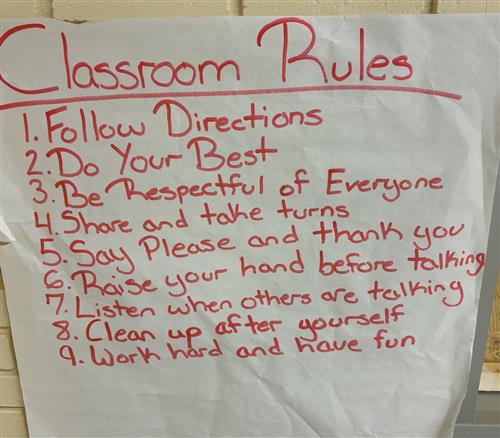 Classroom Rules
1. Follow Directions
2. Do Your Best
3. Be Respectful of Everyone
4. Share and take turns
5. Say Please and thank you
6. Raise your hand before talking
7. Listen when others are talking
8. Clean up after yourself
9. Work hard and have fun